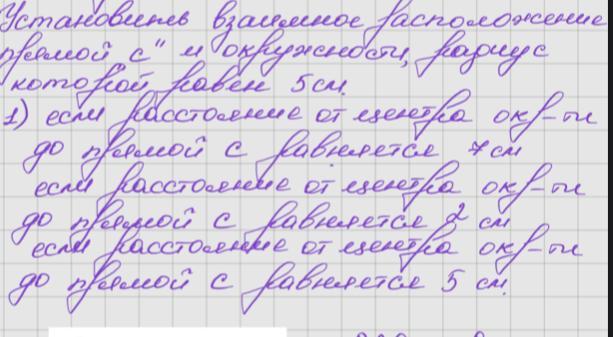 Установить взаимное расположение
прямой с" и окружности, радиус
которой равен 5 см.
1) если расстояние от центра окр-ти
до прямой с равняется 7 см
если расстояние от центра окр-ти
до прямой с равняется 2 см
если расстояние от центра окр-ти
до прямой с равняется 5 см.